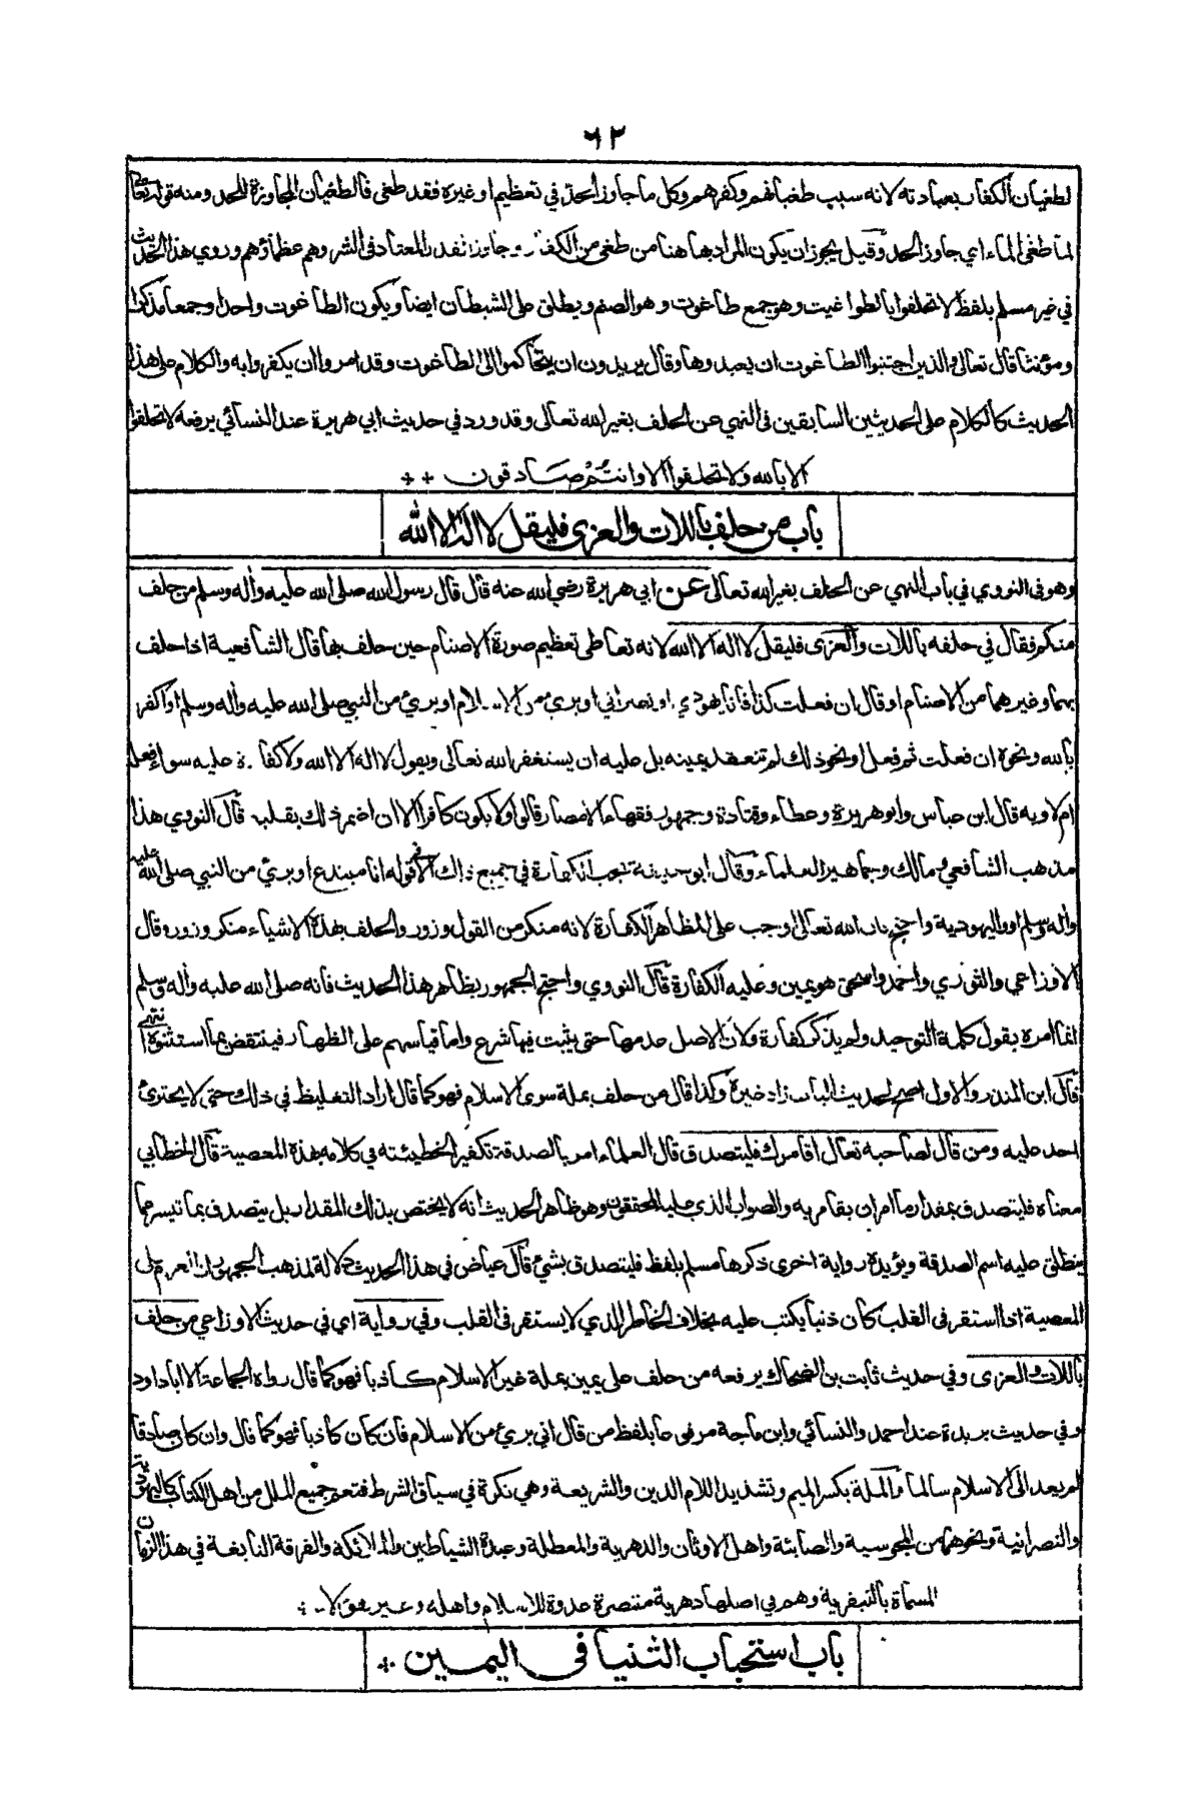 ٦٢
لطغيان الكفار بعبادته لانه سبب طغيانهم وكفرهم وكل ما جاوز الحد في تعظيم او غيره فقد طغى فالطغيان المجاوزة للحد ومنه قوله تعالى
لما طغى الماء اي جاوز الحد وقيل يجوز ان يكون المراد بها هنا من طغى من الكفار وجاوز القدر المعتاد في الشر وهم عظماؤهم وروي هذا الحديث
في غير مسلم بلفظ لا تحلفوا بالطواغيت وهو جمع طاغوت وهو الصنم ويطلق على الشيطان ايضا ويكون الطاغوت واحدا وجمعا مذكرا
ومؤنثا قال تعالى والذين اجتنبوا الطاغوت ان يعبدوها وقال يريدون ان يتحاكموا الى الطاغوت وقد امروا ان يكفروا به والكلام على هذا
الحديث كالكلام على الحديثين السابقين في النهي عن الحلف بغير الله تعالى وقد ورد في حديث ابي هريرة عند النسائي يرفعه لا تحلفوا
الا بالله ولا تحلفوا الا وانتم صادقون
باب من حلف باللات والعزى فليقل لا اله الا الله
وهو في النووي في باب النهي عن الحلف بغير الله تعالى عن ابي هريرة رضي الله عنه قال قال رسول الله صلى الله عليه وأله وسلم من حلف
منكم فقال في حلفه باللات والعزى فليقل لا اله الا الله لانه تعاطى تعظيم صورة الاصنام حين حلف بها قال الشافعية اذا حلف
بهما وغيرهما من الاصنام او قال ان فعلت كذا فانا يهودي او نصراني او بريء من الاسلام او بريء من النبي صلى الله عليه وأله وسلم او اكفر
بالله ونحوه ان فعلت ثم فعل ونحو ذلك لم تنعقد يمينه بل عليه ان يستغفر الله تعالى ويقول لا اله الا الله ولا كفارة عليه سواء فعل
ام لا وبه قال ابن عباس وابو هريرة وعطاء وقتادة وجمهور فقهاء الامصار قالوا ولا يكون كافرا الا ان اضمر ذلك بقلبه قال النووي هذا
مذهب الشافعي ومالك وجماهير العلماء وقال ابو حنيفة تجب الكفارة في جميع ذلك الا في قوله انا مبتدع او بريء من النبي صلى الله عليه
وأله وسلم او واليهودية واحتج بان الله تعالى اوجب على المظاهر الكفارة لانه منكر من القول وزور والحلف بهذه الاشياء منكر وزور وقال
الاوزاعي والثوري واحمد واسحق هو يمين وعليه الكفارة قال النووي واحتج الجمهور بظاهر هذا الحديث فانه صلى الله عليه وأله وسلم
انما امره بقول كلمة التوحيد ولم يذكر كفارة ولان الاصل عدمها حتى يثبت فيها شرع واما قياسهم على الظهار فينتقض بما استثنوه انتهى
قال ابن المنذر والاول اصح لحديث الباب زاد غيره وكذا قال من حلف بملة سوى الاسلام فهو كما قال اراد التغليظ في ذلك حتى لا يجترئ
احد عليه ومن قال لصاحبه تعال اقامرك فليتصدق قال العلماء امر بالصدقة تكفير الخطيئته في كلامه بهذه المعصية قال الخطابي
معناه فليتصدق بمقدار ما امر ان يقامر به والصواب الذي عليه المحققون وهو ظاهر الحديث انه لا يختص بذلك المقدار بل يتصدق بما تيسر مما
ينطلق عليه اسم الصدقة ويؤيده رواية اخرى ذكرها مسلم بلفظ فليتصدق بشيء قال عياض في هذا الحديث دلالة لمذهب الجمهور ان العزم على
المعصية اذا استقر في القلب كان ذنبا يكتب عليه بخلاف الخاطر الذي لا يستقر في القلب وفي رواية اي في حديث الاوزاعي من حلف
باللات والعزى وفي حديث ثابت بن الضحاك يرفعه من حلف على يمين بملة غير الاسلام كاذبا فهو كما قال رواه الجماعة الا ابا داود
وفي حديث بريدة عند احمد والنسائي وابن ماجة مرفوعا بلفظ من قال اني بريء من الاسلام فان كان كاذبا فهو كما قال وان كان صادقا
لم يعد الى الاسلام سالما والملة بكسر الميم وتشديد اللام الدين والشريعة وهي نكرة في سياق الشرط فتعم جميع الملل من اهل الكتاب كاليهودية
والنصرانية ونحوهما من المجوسية والصابئة واهل الاوثان والدهرية والمعطلة وعبدة الشياطين والملائكة والفرقة النابغة في هذا الزمان
المسماة بالنيفرية وهم في اصلها دهرية متنصرة عدوة للاسلام واهله
باب استحباب الثنيا في اليمين